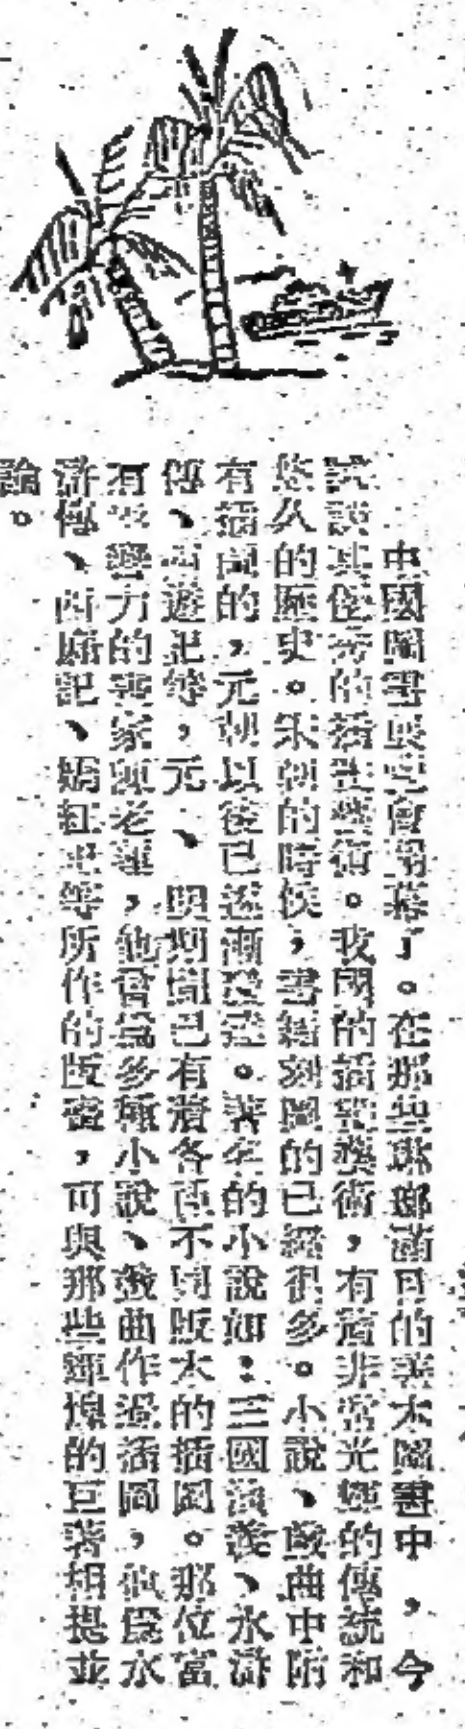 中國圖書展覽會揭幕了。在那些琳瑯滿目的善本圖書中，今
試談其優秀的插畫藝術。我國的插畫藝術，有着非常光輝的傳統和
悠久的歷史。宋朝的時候，書籍刻圖的已經很多。小說、戲曲中附
有插圖的，元朝以後已逐漸發達。著名的小說如：三國演義、水滸
傳、西遊記等，元、明期間已有着各種不同版本的插圖。那位富
有響力的畫家陳老蓮，他曾爲多種小說、戲曲作過插圖，他爲水
滸傳、西廂記、嬌紅記等所作的版畫，可與那些輝煌的巨著相提並
論。